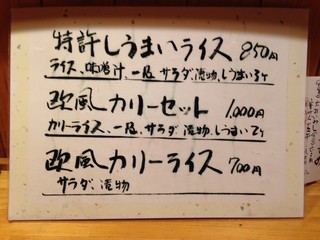 特許しうまいライス 850円
ライス、味噌汁、一品、サラダ、漬物、しうまい3ケ
欧風カリーセット 1,000円
カリーライス、一品、サラダ、漬物、しうまい2ケ
欧風カリーライス 700円
サラダ、漬物